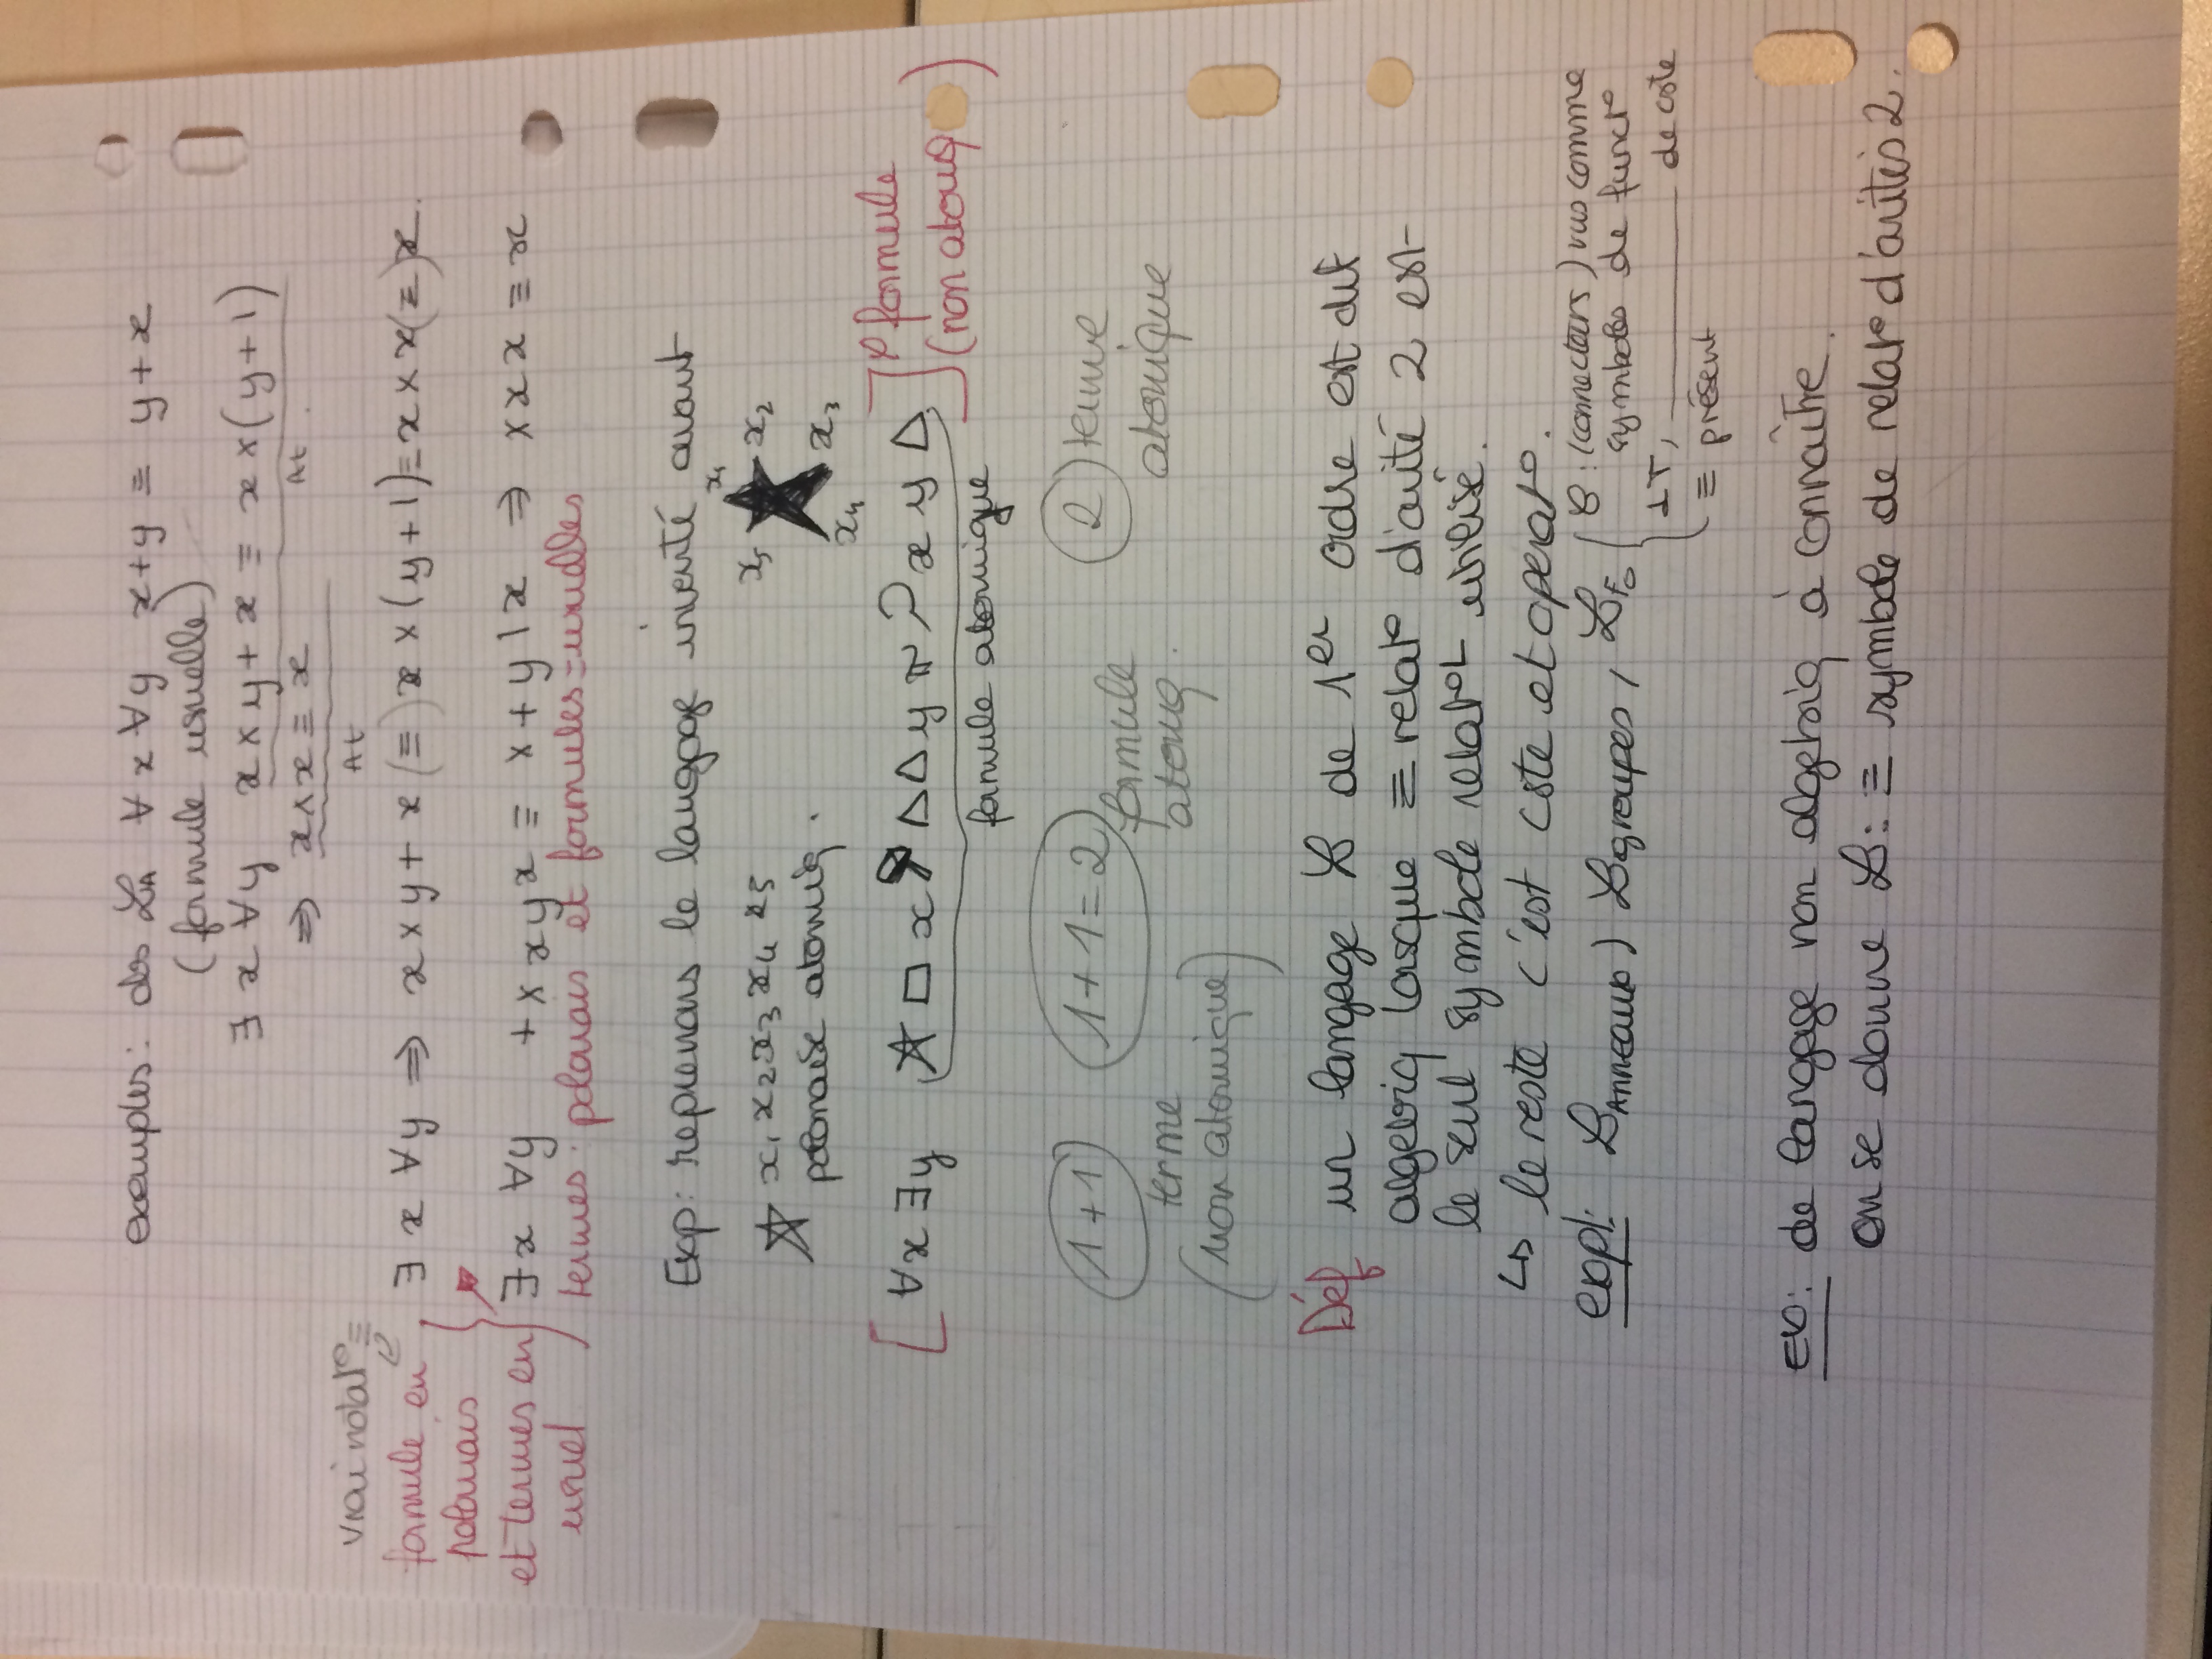 exemples: ds ℒA ∀x∀y x+y ≡ y+x
(formule usuelle)
∃x ∀y x×y+x ≡ x×(y+1)
At.
⇒ x×x ≡ x
At
vrai notat° ≡
formule en
polonais
et termes en
usuel
∃x ∀y ⇒ x×y+x (≡) x×(y+1) ≡ x×x(≡)x.
∃x ∀y +×xyx ≡ ×+y1x ⇒ ×xx ≡ x
termes: polonais et formules=usuelles
Exp: reprenons le langage inventé avant
☆ x1 x2 x3 x4 x5
polonaise atomiq.
x1
x5 ★ x2
x3
x4
[∀x∃y ☆ □ x △△y x y △]
formule atomique
formule
(non atomiq)
1+1 1+1=2 2 terme
terme formule atomique
(non atomique) atomiq.
Déf un langage ℒ de 1er ordre est dit
algebriq lorsque ≡ relat° d'arité 2 est
le seul symbole relat°L utilisé.
↳ le reste c'est cste et operat°.
expl: ℒAnneaux, ℒgroupes, ℒF0
C: (connecteurs) vus comme
symboles de funct°
⊥⊤, ———— de cste
≡ présent
Ex: de langage non algebriq à connaître.
on se donne ℒ: ≡ symbole de relat° d'arités 2.